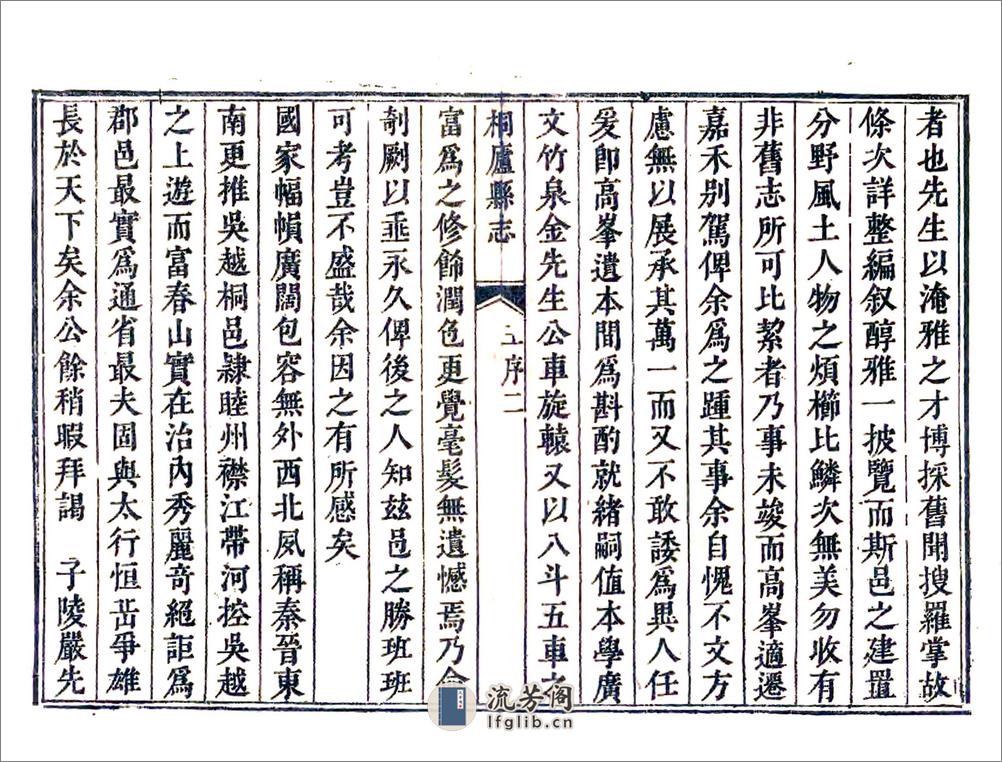 者也先生以淹雅之才博採舊聞搜羅掌故
條次詳整編叙醇雅一披覽而斯邑之建置
分野風土人物之煩櫛比鱗次無美勿收有
非舊志所可比絜者乃事未竣而高峯適遷
嘉禾別駕俾余爲之踵其事余自愧不文方
慮無以展承其萬一而又不敢諉爲異人任
爰即高峯遺本間爲斟酌就緒嗣值本學廣
文竹泉金先生公車旋轅又以八斗五車之
桐廬縣志
序二
富爲之修餙潤色更覺毫髮無遺憾焉乃命
剞劂以垂永久俾後之人知兹邑之勝班班
可考豈不盛哉余因之有所感矣
國家幅幀廣闊包容無外西北夙稱秦晉東
南更推吳越桐邑隷睦州襟江帶河控吳越
之上遊而富春山實在治內秀麗奇絕詎爲
郡邑最實爲通省最夫固與太行恒岳爭雄
長於天下矣余公餘稍暇拜謁 子陵嚴先
流芳阁
lfglib.cn